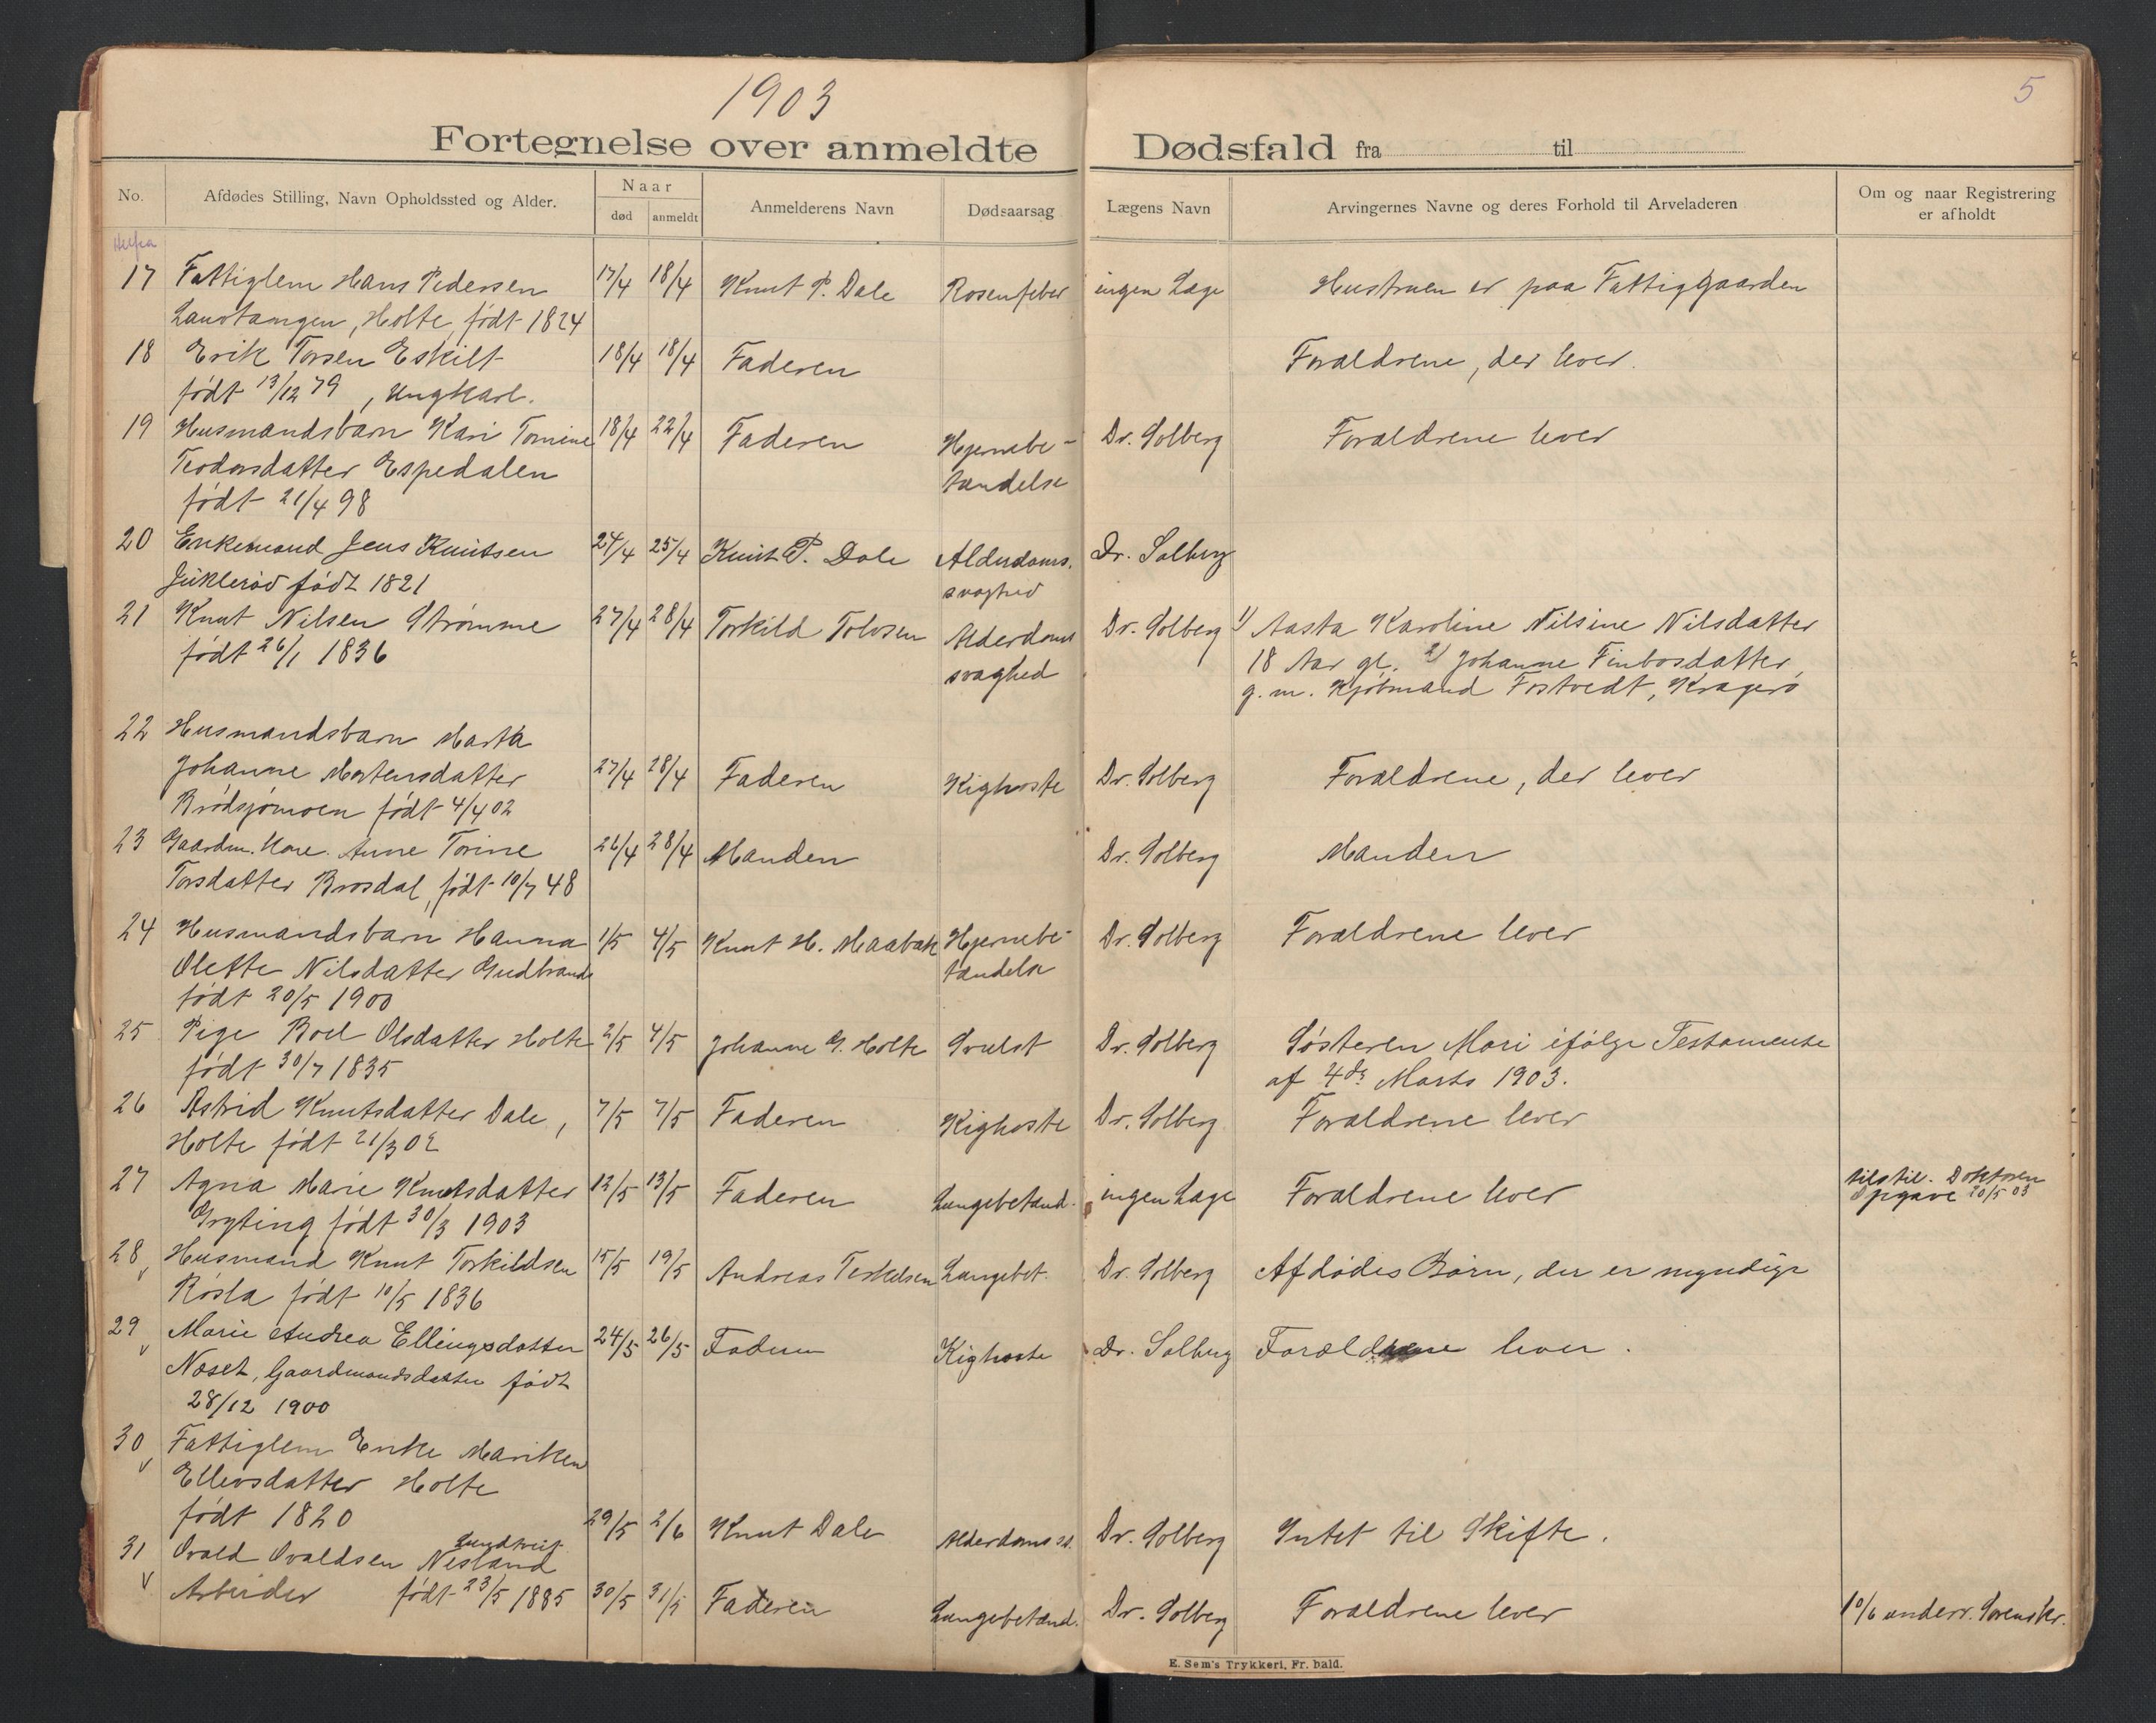 1903
5
Fortegnelse over anmeldte Dødsfald fra til
No.
Afdødes Stilling, Navn Opholdssted og Alder.
Naar
død
anmeldt
Anmelderens Navn
Dødsaarsag
Lægens Navn
Arvingernes Navne og deres Forhold til Arveladeren
Om og naar Registrering
er afholdt
17 Fattiglem Hans Pedersen 17/4 18/4 Knut P. Dale Rosenfeber ingen Læge Hustruen er paa Fattiggaarden
Holte, født 1824
18 Erik Torsen Eskilt 18/4 18/4 Faderen Forældrene, der lever.
født 13/12 79, Ungkarl.
19 Husmandsbarn Kari Tomine 18/4 22/4 Faderen Hjernebe- Dr. Solberg Forældrene lever
Teodorsdatter Espedalen tændelse
født 21/4 98
20 Enkemand Jens Knutsen 24/4 25/4 Knut P. Dale Alderdoms. Dr. Solberg
Juklerød født 1821 svaghed
21 Knut Nilsen Strømme 27/4 28/4 Torkild Tolvsen Alderdoms Dr. Solberg 1) Aasta Karoline Nilsine Nilsdatter
født 26/1 1836 svaghed 18 Aar gl. 2) Johanne Finbosdatter,
g. m. Kjøbmand Fostvedt, Kragerø
22 Husmandsbarn Marta
Johanne Mortensdatter 27/4 28/4 Faderen Kighoste Dr. Solberg Forældrene, der lever
Brødsjømoen født 4/4 02
23 Gaardm. Kone. Anne Torine 26/4 28/4 Manden Dr. Solberg Manden
Torsdatter Brosdal, født 10/7 48
24 Husmandsbarn Hanna 1/5 4/5 Knut H. Maabæk Hjernebe- Dr. Solberg Forældrene lever
Olette Nilsdatter Gudbrands tændelse
født 20/5 1900
25 Pige Boel Olsdatter Holte 2/5 4/5 Johanne G. Holte Svulst Dr. Solberg Søsteren Mari ifølge Testamente
født 30/7 1835 af 4de Marts 1903.
26 Astrid Knutsdatter Dale, 7/5 7/5 Faderen Kighoste Dr. Solberg Forældrene lever
Holte født 21/3 02
27 Agna Marie Knutsdatter 12/5 13/5 Faderen Lungebetænd. ingen Læge Forældrene lever tilstil. Doktoren
Gryting født 30/3 1903 Opgave 20/5 03
28 Husmand Knut Torkildsen 15/5 19/5 Andreas Terkelsen Lungebet. Dr. Solberg Afdødes Børn, der er myndige
v Røsla født 10/5 1836
29 Marie Andrea Ellingsdatter 24/5 26/5 Faderen Kighoste Dr. Solberg Forældrene lever.
v Næset, Gaardmandsdatter født
28/12 1900
30 Fattiglem Enke Mariken
v Ellevsdatter Holte
født 1820 29/5 2/6 Knut Dale Alderdoms sv. Dr. Solberg Intet til Skifte.
Lundtveit
31 Ovald Ovaldsen Nesland
v Arbeider født 23/5 1885 30/5 31/5 Faderen Lungebetænd. Dr. Solberg Forældrene lever 10/6 underr. Sorenskr.
E. Sem's Trykkeri, Fr. hald.